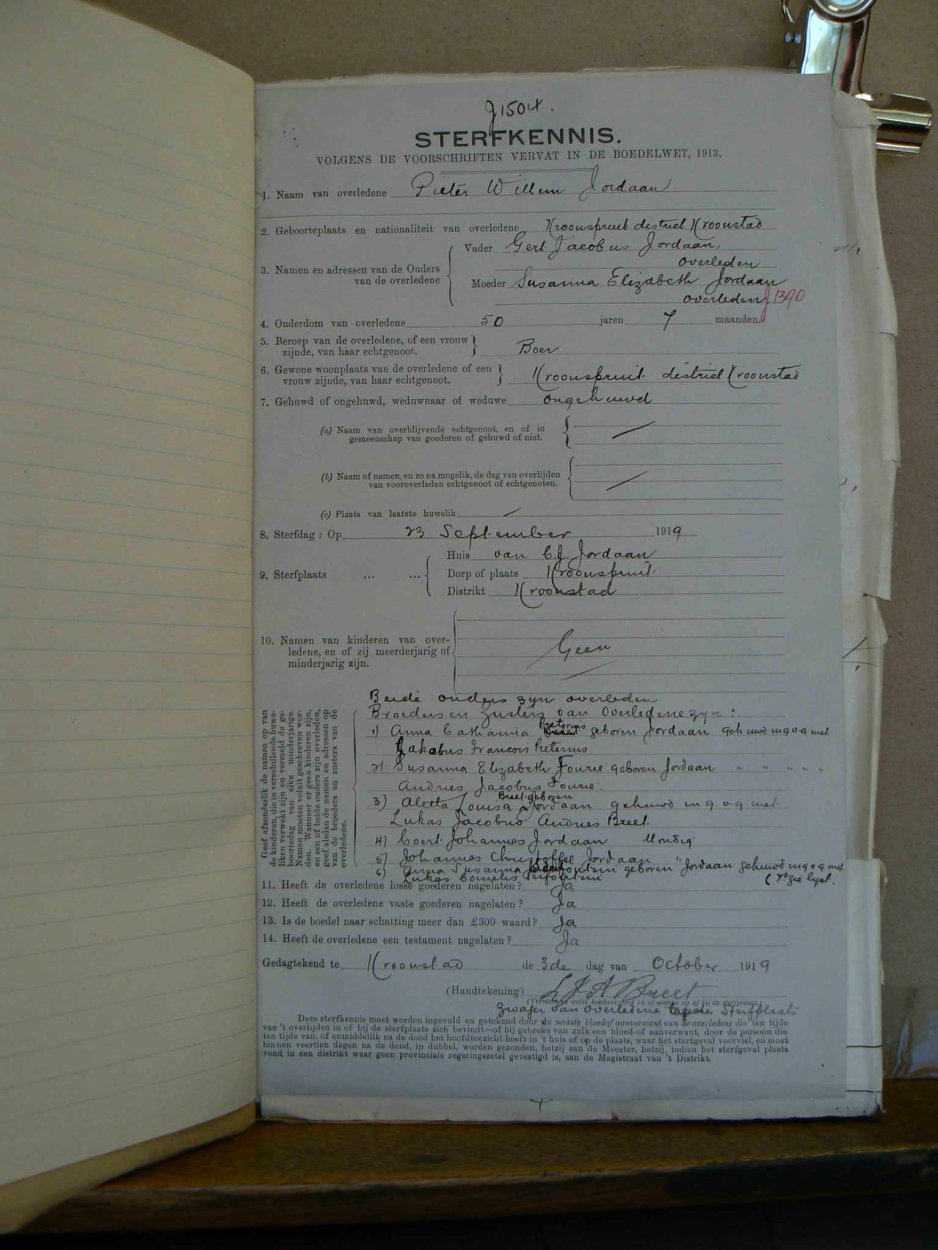 J1504.
STERFKENNIS.
VOLGENS DE VOORSCHRIFTEN VERVAT IN DE BOEDELWET, 1913.
1. Naam van overledene Pieter Willem Jordaan
2. Geboorteplaats en nationaliteit van overledene Kroonspruit district Kroonstad
3. Namen en adressen van de Ouders van de overledene
Vader Gert Jacobus Jordaan,
overleden
Moeder Susanna Elizabeth Jordaan
overleden J1390
4. Ouderdom van overledene 50 jaren 7 maanden.
5. Beroep van de overledene, of een vrouw
zijnde, van haar echtgenoot. Boer
6. Gewone woonplaats van de overledene of een
vrouw zijnde, van haar echtgenoot. Kroonspruit district Kroonstad
7. Gehuwd of ongehuwd, weduwnaar of weduwe ongehuwd
(a) Naam van overblijvende echtgenoot, en of in
gemeenschap van goederen of gehuwd of niet.
(b) Naam of namen, en zo na mogelik, de dag van overlijden
van vooroverleden echtgenoot of echtgenoten.
(c) Plaats van laatste huwelik
8. Sterfdag : Op 23 September 1919
9. Sterfplaats ... ...
Huis van C.J. Jordaan
Dorp of plaats Kroonspruit
Distrikt Kroonstad
10. Namen van kinderen van over-
ledene, en of zij meerderjarig of
minderjarig zijn.
Geen
Geef afzonderlik de namen op van
de kinderen, die in verschillende huwe-
liken verwekt zijn en vermeld de ge-
boortedag van elke minderjarige.
Namen moeten voluit geschreven wor-
den. Wanneer er geen kinderen zijn,
en een of beide ouders zijn overleden,
geef alsdan de namen en adressen op
van de broeders en zusters van de
overledene.
Beide ouders zyn overleden
Broeders en zusters van Overledene zyn :
1) Anna Catharina Pretorius geboren Jordaan gehuwd in g o g met
Jakobus Francois Pretorius
2) Susanna Elizabeth Fourie geboren Jordaan " " " " "
Andries Jacobus Fourie.
3) Aletta Louisa Breet geboren Jordaan gehuwd in g. o g met
Lukas Jacobus Andries Breet
4) Coert Johannes Jordaan Mondig
5) Johannes Christoffel Jordaan "
6) Anna Susanna geboren Jordaan gehuwd in g o g met
Lukas Cornelis
(7 zie lyst.
11. Heeft de overledene losse goederen nagelaten? Ja
12. Heeft de overledene vaste goederen nagelaten? Ja
13. Is de boedel naar schatting meer dan £300 waard? Ja
14. Heeft de overledene een testament nagelaten? Ja
Gedagtekend te Kroonstad de 3de dag van October 1919
(Handtekening) L J A Breet
Zwager van overledene Sterfplaats
Deze sterfkennis moet worden ingevuld en getekend door de naaste bloed of aanverwant van de overledene die ten tijde
van 't overlijden in of bij de sterfplaats zich bevindt—of bij gebreke van zulk een bloed-of aanverwant, door de persoon die
ten tijde van, of onmiddelik na de dood het hoofdtoezicht heeft in 't huis of op de plaats, waar het sterfgeval voorviel, en moet
binnen veertien dagen na de dood, in dubbel, worden gezonden, hetzij aan de Meester, hetzij, indien het sterfgeval plaats
vond in een distrikt waar geen provinciale regeringszetel gevestigd is, aan de Magistraat van 't Distrikt.